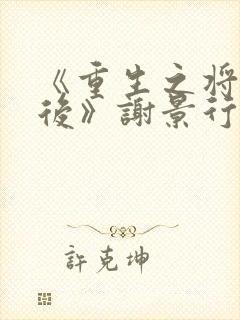 《重生之将
後》謝景行
許克坤